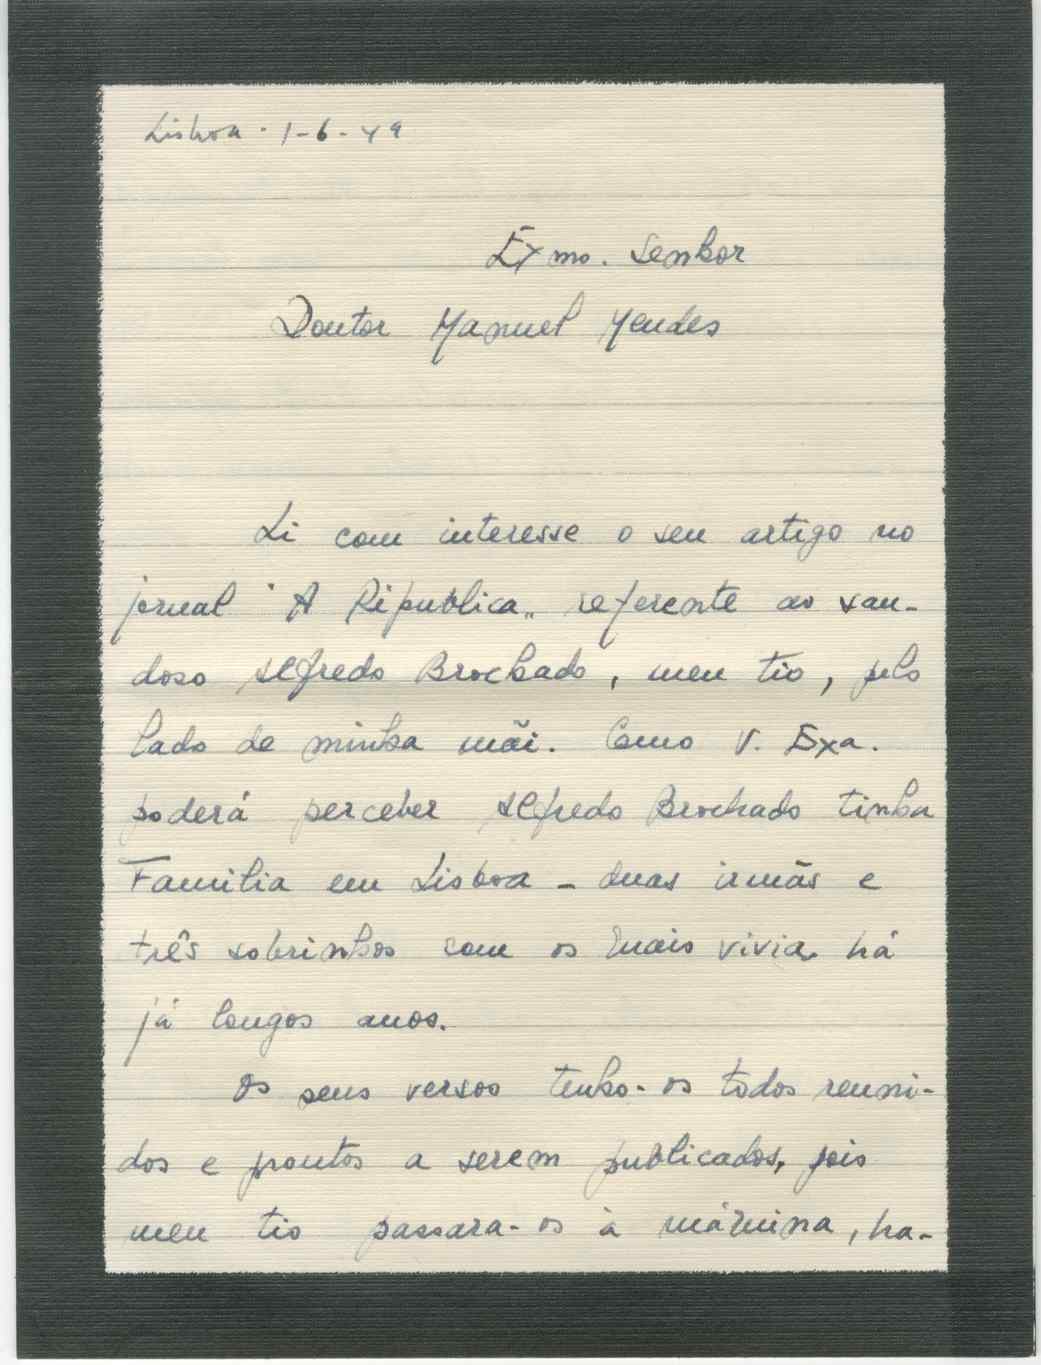 Lisboa - 1-6-49
Exmo. Senhor
Doutor Manuel Mendes
Li com interesse o seu artigo no
jornal "A República" referente ao sau-
doso Alfredo Brochado, meu tio, pelo
lado de minha mãi. Como V. Exa.
poderá perceber Alfredo Brochado tinha
Familia em Lisboa - duas irmãs e
três sobrinhos com os quais vivia há
já longos anos.
Os seus versos tenho-os todos reuni-
dos e prontos a serem publicados, pois
meu tio passara-os à máquina, ha-